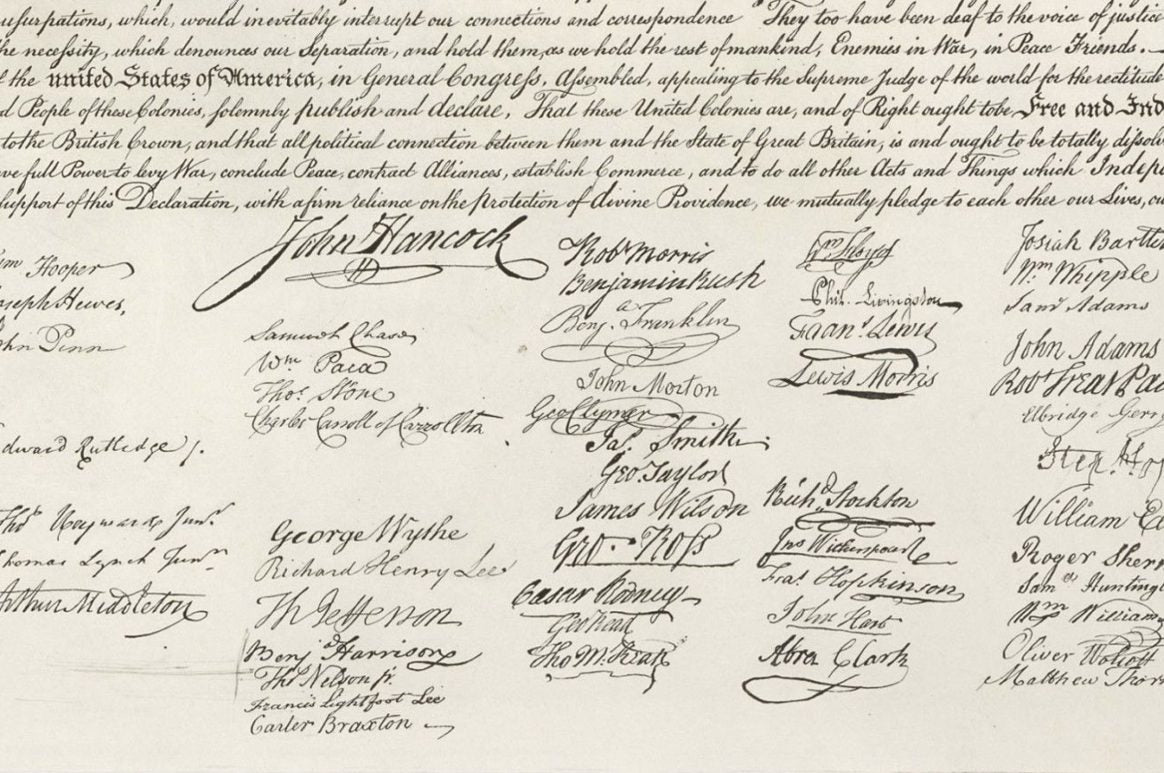 usurpations, which, would inevitably interrupt our connections and correspondence They too have been deaf to the voice of justice
he necessity, which denounces our Separation, and hold them, as we hold the rest of mankind, Enemies in War, in Peace Friends. —
f the united States of America, in General Congress, Assembled, appealing to the Supreme Judge of the world for the rectitude
d People of these Colonies, solemnly publish and declare, That these United Colonies are, and of Right ought to be Free and Ind
to the British Crown, and that all political connection between them and the State of Great Britain, is and ought to be totally dissolv
ve full Power to levy War, conclude Peace, contract Alliances, establish Commerce, and to do all other Acts and Things which Indepe
support of this Declaration, with a firm reliance on the protection of divine Providence, we mutually pledge to each other our Lives, ou
Wm Hooper
Joseph Hewes,
John Penn
Edward Rutledge /.
Thos Heyward Junr.
Thomas Lynch Junr.
Arthur Middleton
John Hancock
Samuel Chase
Wm. Paca
Thos. Stone
Charles Carroll of Carrollton
George Wythe
Richard Henry Lee
Th Jefferson
Benj Harrison
Thos Nelson jr.
Francis Lightfoot Lee
Carter Braxton
Robt Morris
Benjamin Rush
Benj. Franklin
John Morton
Geo Clymer
Jas. Smith
Geo. Taylor
James Wilson
Geo. Ross
Caesar Rodney
Geo Read
Tho M:Kean
Wm Floyd
Phil. Livingston
Frans. Lewis
Lewis Morris
Richd. Stockton
Jno Witherspoon
Fras. Hopkinson
John Hart
Abra Clark
Josiah Bartlet
Wm. Whipple
Saml Adams
John Adams
Robt Treat Pai
Elbridge Gerry
Step. Hop
William El
Roger Sherr
Saml Huntingt
Wm Williams
Oliver Wolcott
Matthew Thor